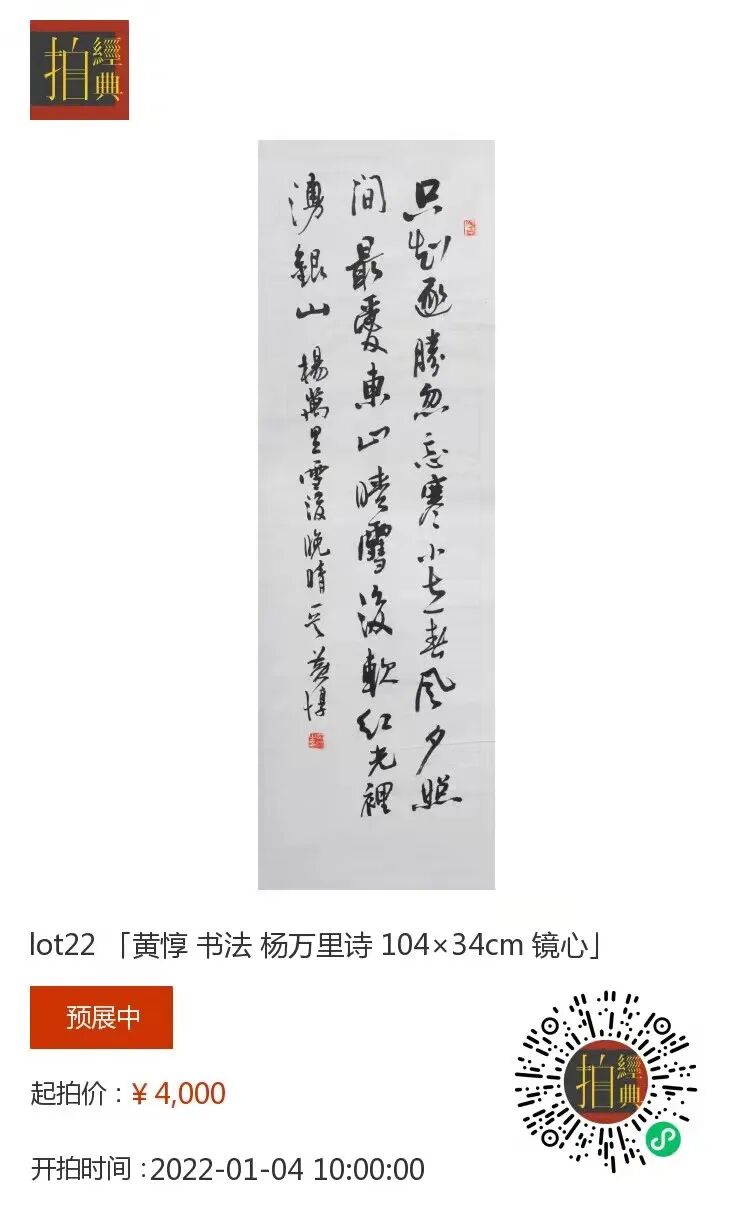 拍
經典
只知逐勝忽忘寒小立春風夕照
間最愛東山晴雪後軟紅光裡
湧銀山 楊萬里雪後晚晴 黃惇
lot22 「黄惇 书法 杨万里诗 104×34cm 镜心」
预展中
起拍价：¥ 4,000
开拍时间：2022-01-04 10:00:00
拍
經典